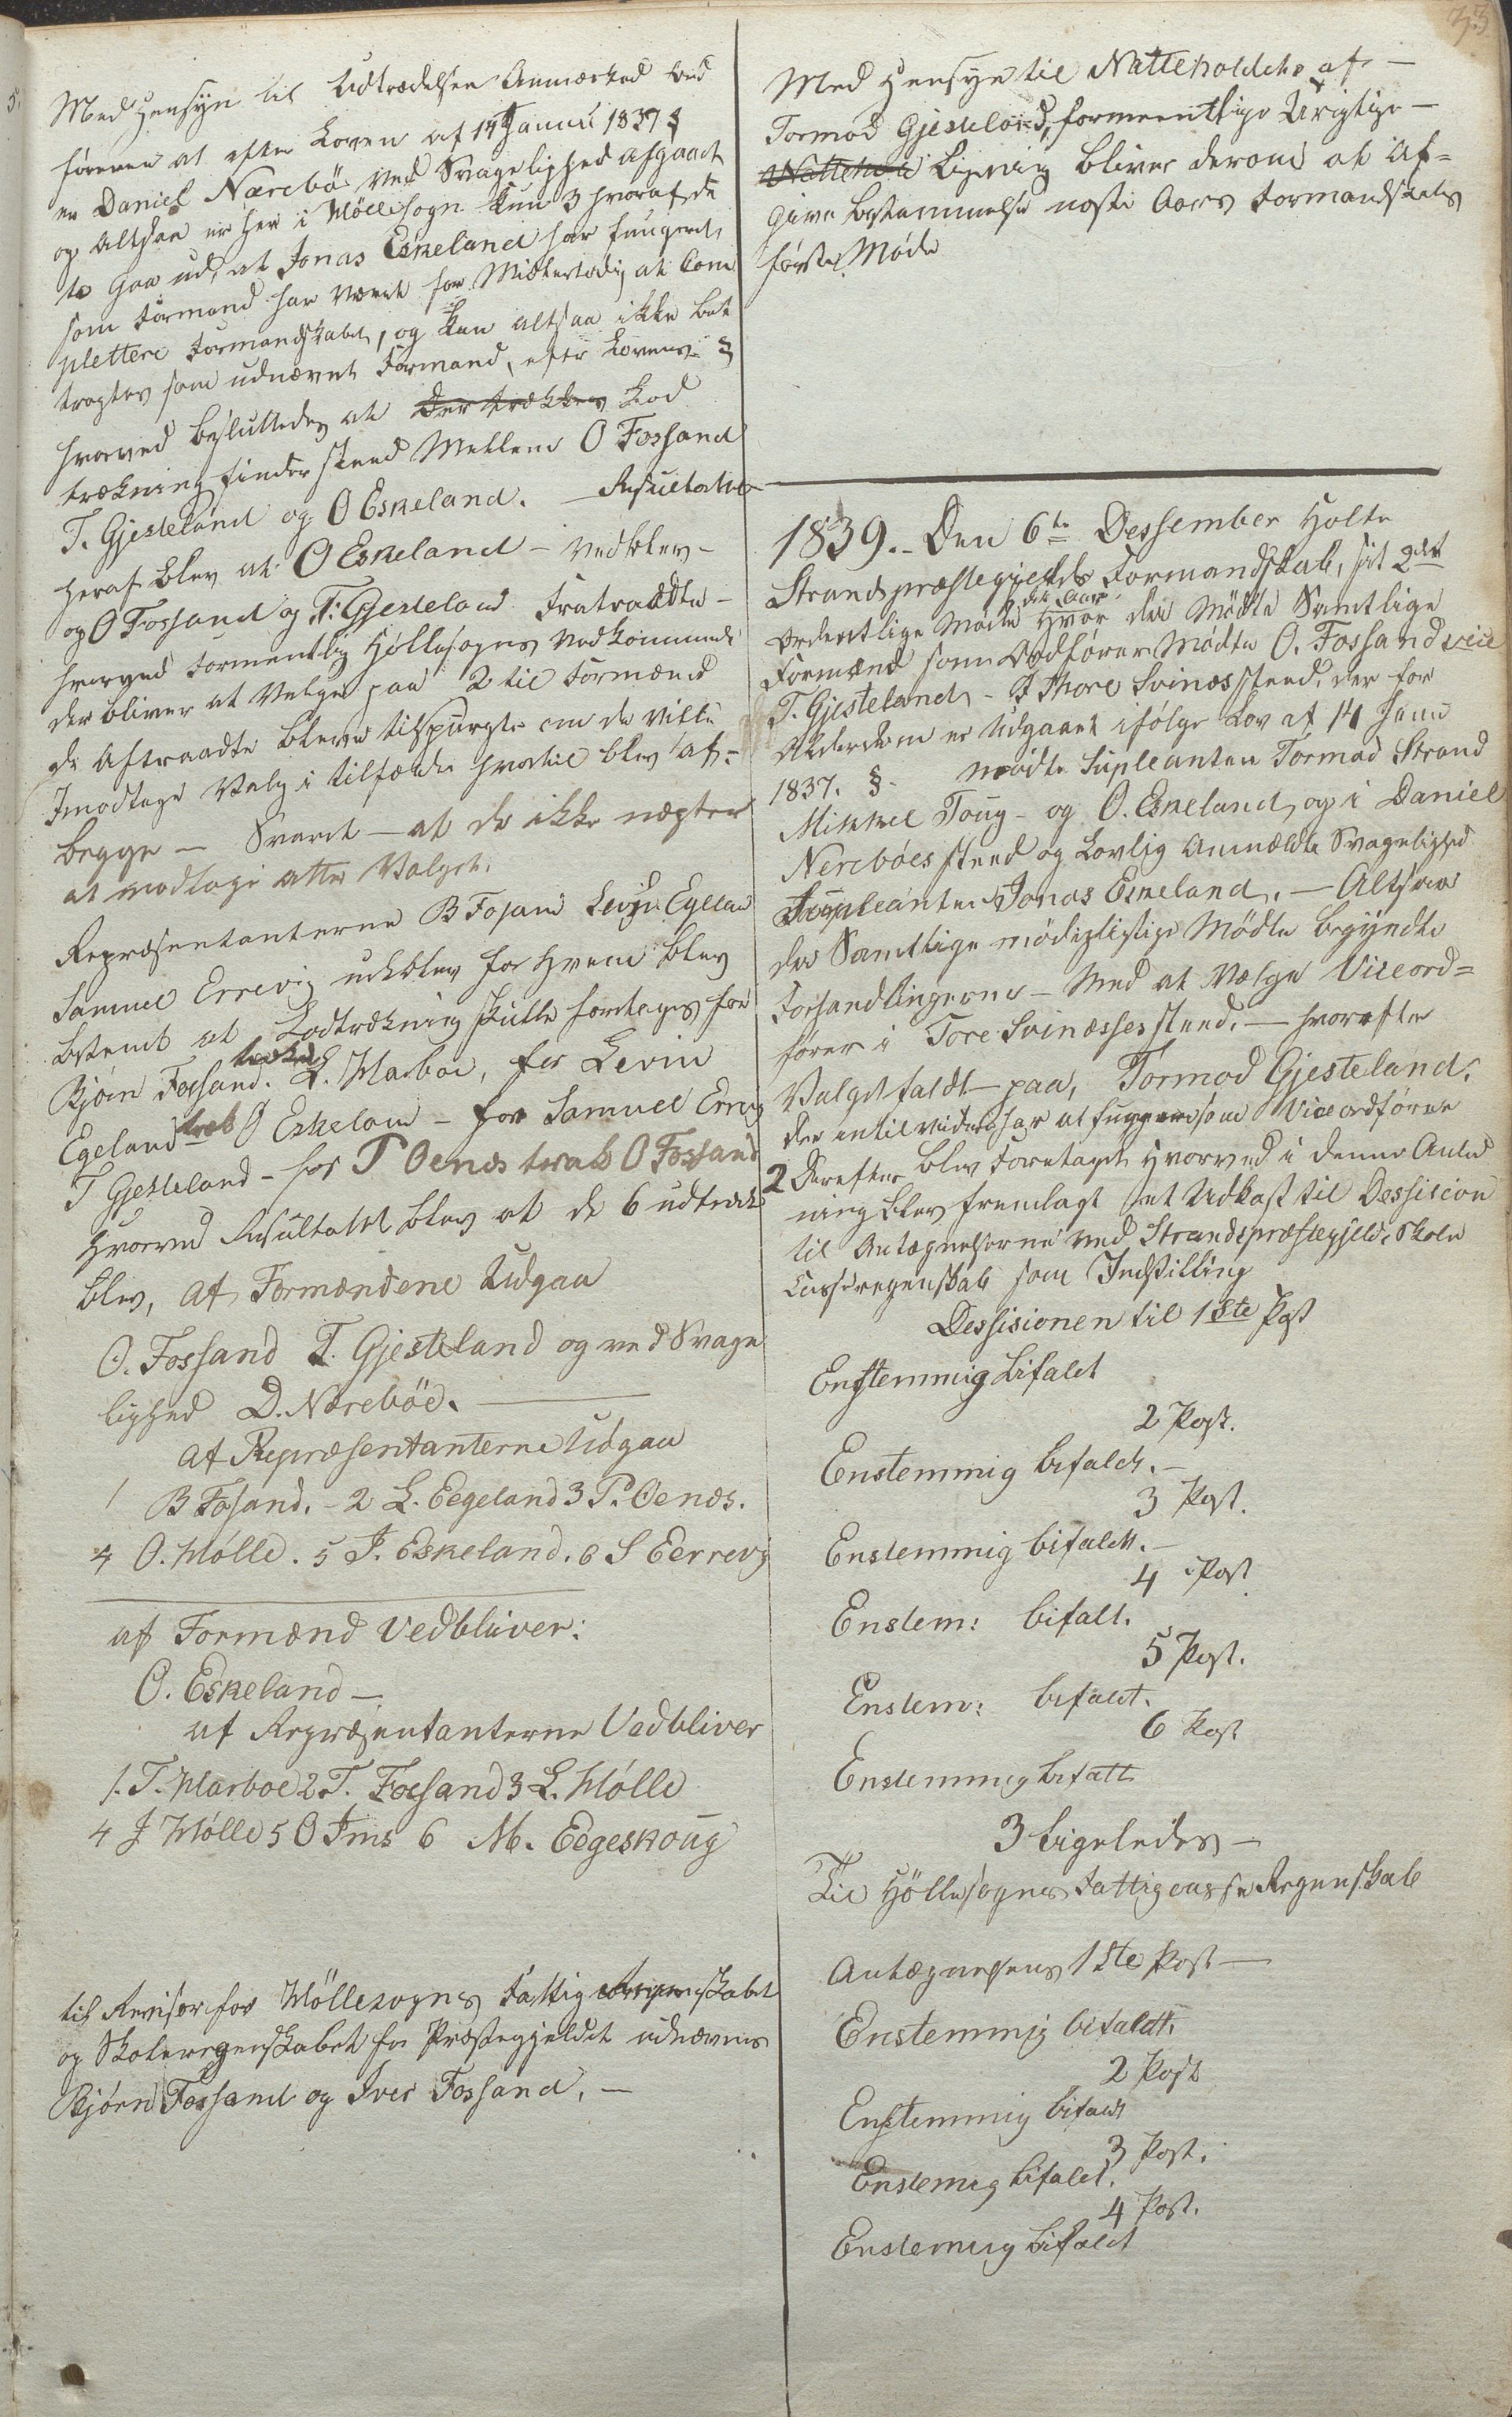 33
5.
Med Hensyn til Udtrædelsen Anmærked ord
føreren at efter Loven af 14 Januar 1837 §
er Daniel Nærebö ved Svagelighed afgaaet
og Altsaa er her i Höllesogn kun 3 hvoraf de
to gaa ud, at Jonas Eskeland har fungeret
som Formand har været for Midlertidig at Com
plettere Formandskabet, og kan altsaa ikke bet
tragtes som udnævnt Formand, efter Lovens §
hvorved besluttedes at der trækkes Lod
trækning finder sted Mellem O Fossand
T. Gjesteland og O Eskeland. – Resultatet
heraf blev at O Eskeland – vedblev –
og O Fossand og T: Gjesteland fratraadte –
hvorved formentlig Höllesognes vedkommende
der bliver at Velges paa 2 til Formænd
de Aftraadte bleve tilspurgte om de vilde
Imodtage Valg i tilfælde hvortil blev af
begge – Svaret – at de ikke negter
at modtage atter Valget.
Repræsentanterne B Fosand Levin Egeland
Samuel Errevig udblev for Hvem blev
bestemt at Lodtrækning skulle foretages for
Bjørn Fossand. trækkes L. Marboe, for Levin
Egeland trak O Eskeland – for Samuel Errevig
T Gjesteland – for P Oenæs trak O Fossand
Hvorved Resultatet blev at de 6 udtrædende
blev, Af Formændene Udgaa
O. Fossand T. Gjesteland og ved Svage
lighed D. Næreböe.
af Repræsentanterne Udgaa
1 B Fosand. – 2 L. Eegeland 3 P. Oenæs.
4 O. Hölle. 5 J. Eskeland. 6 S Eerrevig
af Formænd Vedbliver:
O. Eskeland –
af Repræsentanterne Vedbliver
1. T. Marboe 2 T. Fossand 3 L. Hölle
4 J Hölle 5 O Ims 6 M. Eegeskoug
til Revisor for Höllesognes Fattig regnskabet
og Skoleregnskabet for Præstegjeldet udnævnes
Bjørn Fossand og Iver Fossand. –
Med Hensyn til Natteholdet af –
Tormod Gjesteland, formeentlige Urigtige –
Ligning bliver derom at Af=
give bestemmelse neste Aars Formandskabs
første Møde
1839. – Den 6te Dessember Holte
Strandspræstegjelds Formandskab, sit 2det
Ordentlige Møde dette Aar Hvor da Mødte Samtlige
Formænd som Ordfører Mødte O. Fossand vice
T. Gjesteland – I Thore Svinæs sted, der for
Alderdom er Udgaaet ifølge Lov af 14 Janu
1837. § – mødte Supleanten Tormod Strand
Mikkel Toug – og O. Eskeland og i Daniel
Nereböes sted og Lovlig Anmeldte Svagelighed
Supleanten Jonas Eskeland. – Altsaa
da Samtlige mödepligtige Mödte begyndte
Forhandlingerne – Med at Vælge Viceord=
fører i Tore Svinæsses sted, – hvorefter
Valget faldt paa, Tormod Gjesteland.
der indtil videre har at fungere som Viceordfører
2 Derefter blev Foretaget Hvorved i denne Anled
ning blev fremlagt et Udkast til Dessision
til Antegnelserne ved Strandspræstegjelds Skole
Casseregenskab som Indstilling
Dessisionen til 1ste Post
Enstemmig bifaldt
2 Post.
Enstemmig bifaldt. –
3 Post.
Enstemmig bifaldt. –
4 Post
Enstem: bifalt.
5 Post.
Enstem: bifaldt.
6 Post
Enstemmig bifalt
3 Ligeledes –
Til Höllesognes Fattigcasse Regenskab
Antegnelsens 1ste Post –
Enstemmig bifaldt.
2 Post
Enstemmig bifaldt
3 Post.
Enstemig bifaldt.
4 Post.
Enstemmig bifaldt